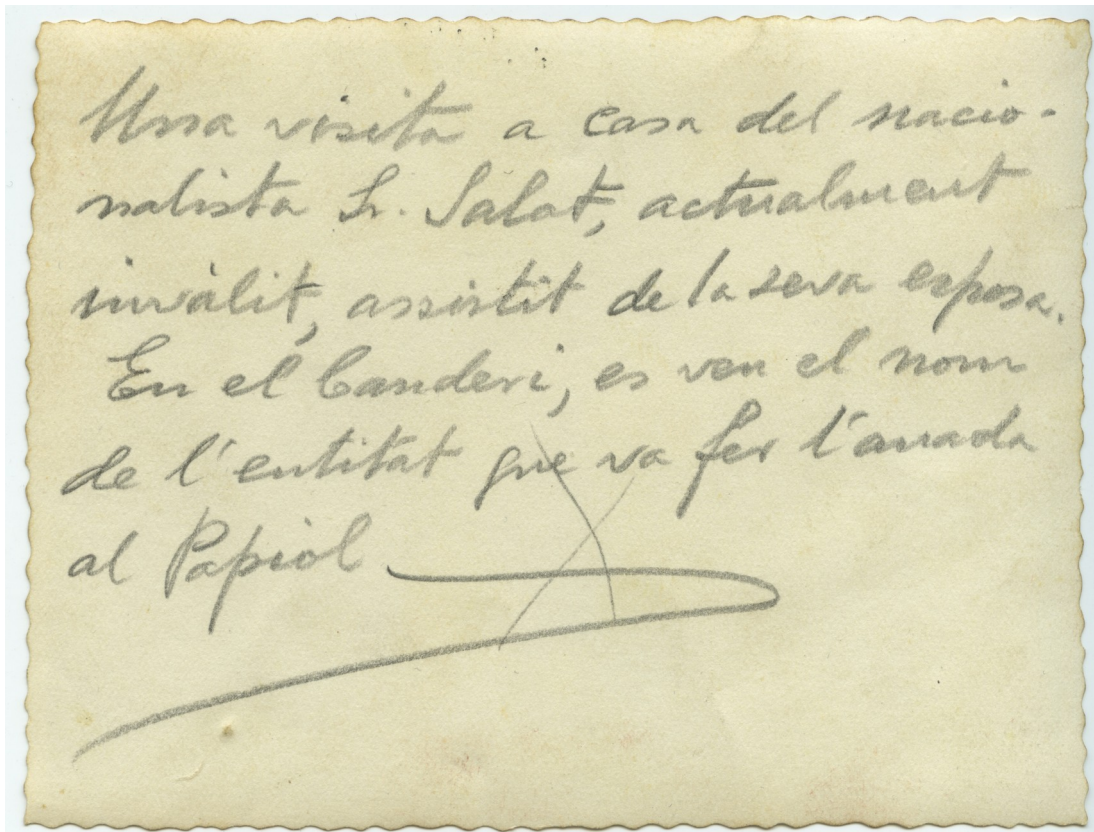 Una visita a casa del nacio-
nalista Sr. Salat, actualment
invàlit, assistit de la seva esposa.
En el banderi, es veu el nom
de l'entitat que va fer l'anada
al Papiol